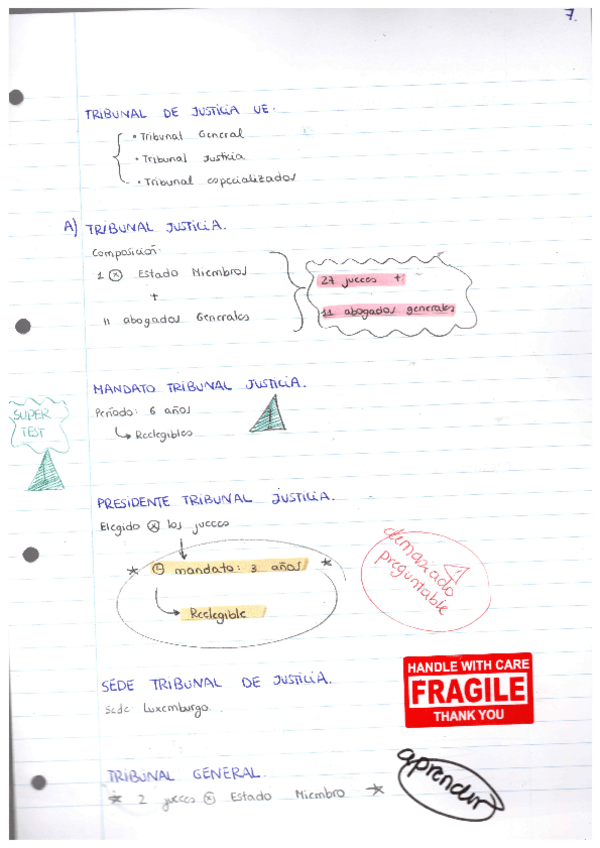 7.
TRIBUNAL DE JUSTICIA UE.
• Tribunal General
• Tribunal Justicia
• Tribunal especializados
A) TRIBUNAL JUSTICIA.
Composición:
1 ⊗ Estado Miembros
+
11 abogados Generales
27 jueces +
11 abogados generales
MANDATO TRIBUNAL JUSTICIA.
Período: 6 años
↳ Reelegibles
SUPER
TEST
PRESIDENTE TRIBUNAL JUSTICIA.
Elegido ⊗ los jueces
* mandato: 3 años *
Reelegible
demasiado
preguntable
SEDE TRIBUNAL DE JUSTICIA.
Sede Luxemburgo.
HANDLE WITH CARE
FRAGILE
THANK YOU
TRIBUNAL GENERAL.
* 2 jueces ⊗ Estado Miembro *
aprender